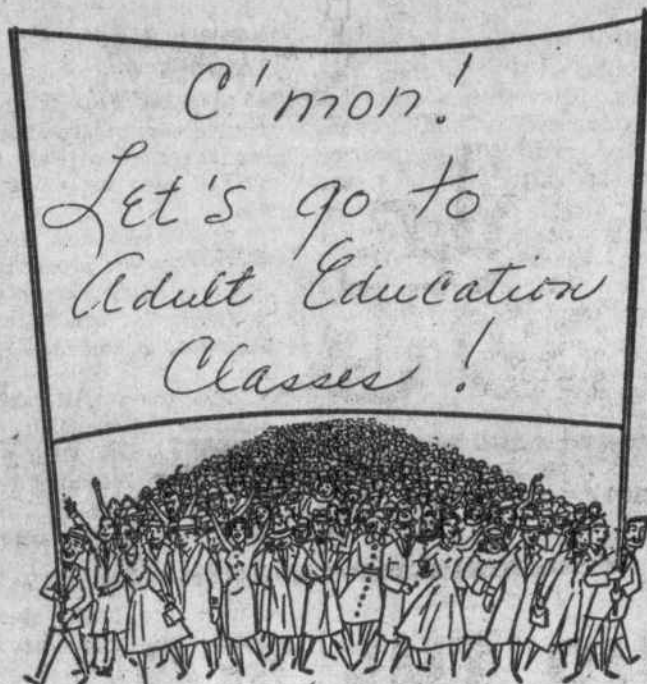 C'mon!
Let's go to
Adult Education
Classes!